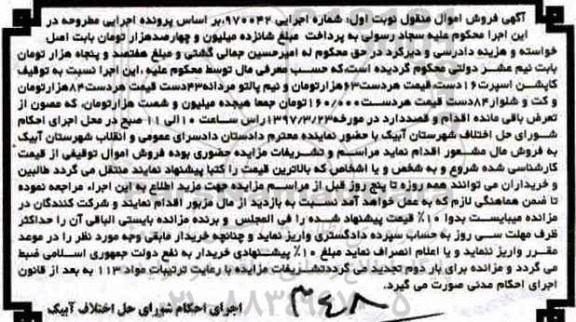 آگهی فروش اموال منقول نوبت اول: شماره اجرایی ۹۷۰۰۴۲.بر اساس پرونده اجرایی مطروحه در
این اجرا محکوم علیه سجاد رسولی به پرداخت مبلغ شانزده میلیون و چهارصدهزار تومان بابت اصل
خواسته و هزینه دادرسی و دیرکرد در حق محکوم له امیرحسین جمالی گشتی و مبلغ هفتصد و پنجاه هزار تومان
بابت نیم عشر دولتی محکوم گردیده است،که حسب معرفی مال توسط محکوم علیه ،این اجرا نسبت به توقیف
کاپشن اسپرت۱۶دست، قیمت هردست۶۳هزارتومان و نیم پالتو مردانه۴۳دست قیمت هردست۸۴هزارتومان
و کت و شلوار۸۴دست قیمت هردست۱۶۰/۰۰۰تومان جمعا هیجده میلیون و شصت هزارتومان، که مصون از
تعرض باقی مانده اقدام و قصددارد در مورخه۱۳۹۷/۳/۲۳راس ساعت ۱۰الی ۱۱ صبح در محل اجرای احکام
شورای حل اختلاف شهرستان آبیک با حضور نماینده محترم دادستان دادسرای عمومی و انقلاب شهرستان آبیک
به فروش مال مشعور اقدام نماید مراسم و تشریفات مزایده حضوری بوده فروش اموال توقیفی از قیمت
کارشناسی شده شروع و به شخص و یا اشخاص که بالاترین قیمت را کتبا پیشنهاد نمایند منتقل می گردد طالبین
و خریداران می توانند همه روزه تا پنج روز قبل از مراسم مزایده جهت مزید اطلاع به این اجراء مراجعه نموده
تا ضمن هماهنگی لازم که به عمل خواهد آمد نسبت به بازدید از مال مزبور اقدام نمایند و شرکت کنندگان در
مزایده میبایست بدوا ۱۰٪ قیمت پیشنهاد شده را فی المجلس و برنده مزایده بایستی الباقی آن را حداکثر
ظرف مهلت سی روز به حساب سپرده دادگستری واریز نماید و چنانچه خریدار مابقی وجه مورد نظر را در موعد
مقرر واریز ننماید و یا اعلام انصراف نماید مبلغ ۱۰٪ پیشنهادی خریدار به نفع دولت جمهوری اسلامی ضبط
می گردد و مزایده برای بار دوم تجدید می گرددتشریفات مزایده با رعایت ترتیبات مواد ۱۱۳ به بعد از قانون
اجرای احکام مدنی صورت می گیرد.
۳۴۸
اجرای احکام شورای حل اختلاف آبیک